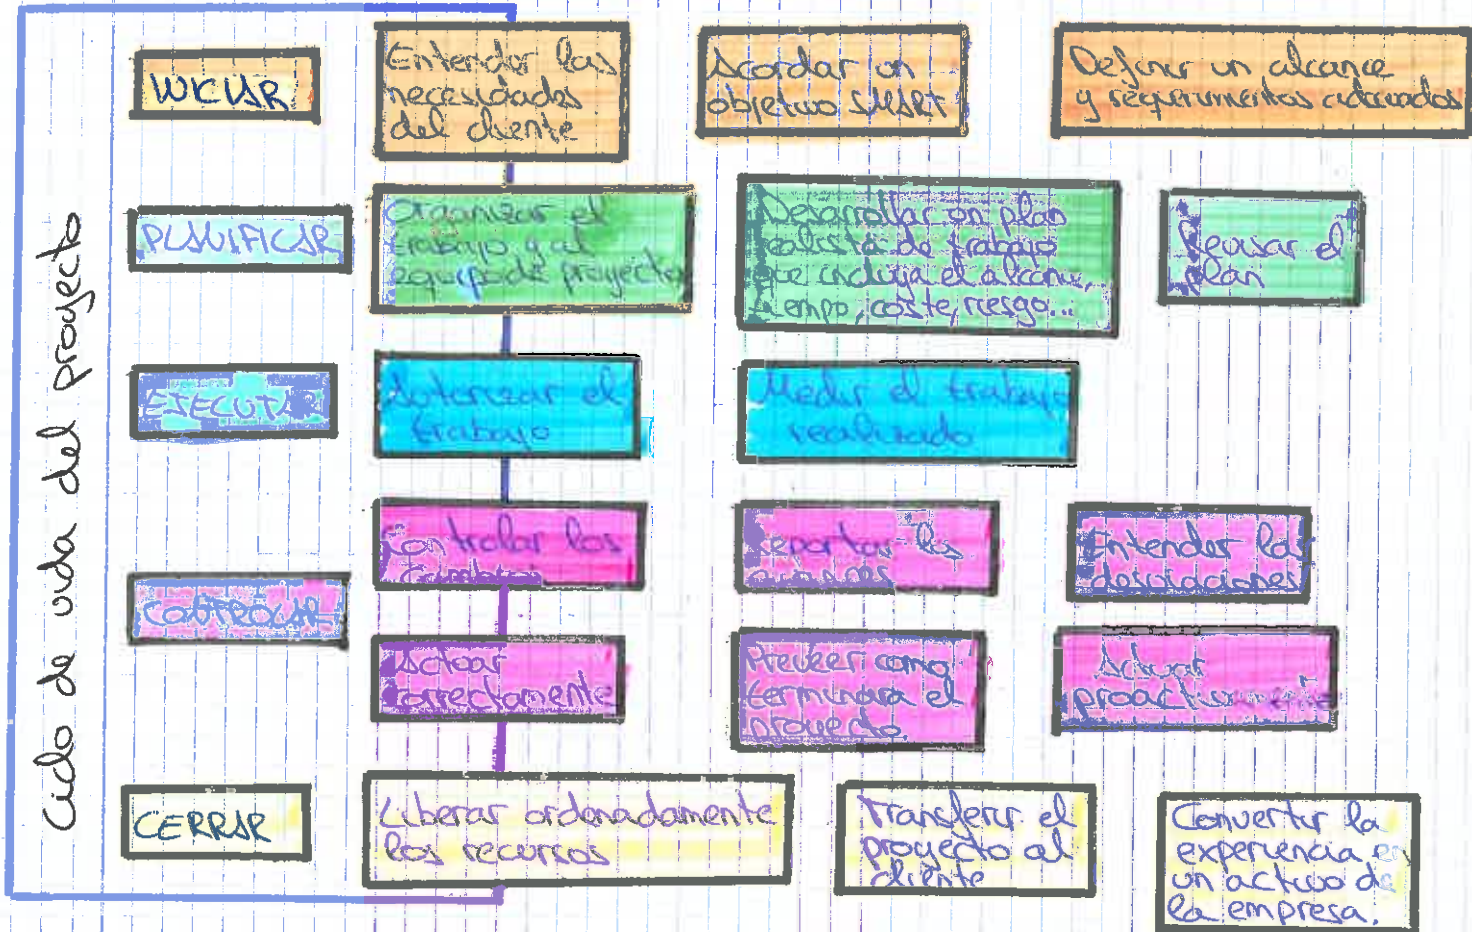 Ciclo de vida del proyecto
INICIAR
Entender las
necesidades
del cliente
Acordar un
objetivo SMART
Definir un alcance
y requerimientos adecuados
PLANIFICAR
Organizar el
trabajo y al
equipo de proyecto
Desarrollar un plan
realista de trabajo
que incluya el alcance,
tiempo, coste, riesgo...
Revisar el
plan
EJECUTAR
Autorizar el
trabajo
Medir el trabajo
realizado
CONTROLAR
Controlar los
cambios
Reportar los
avances
Entender las
desviaciones
Actuar
correctamente
Preveer como
terminara el
proyecto.
Actuar
proactivamente
CERRAR
Liberar ordenadamente
los recursos
Transferir el
proyecto al
cliente
Convertir la
experiencia en
un activo de
la empresa.